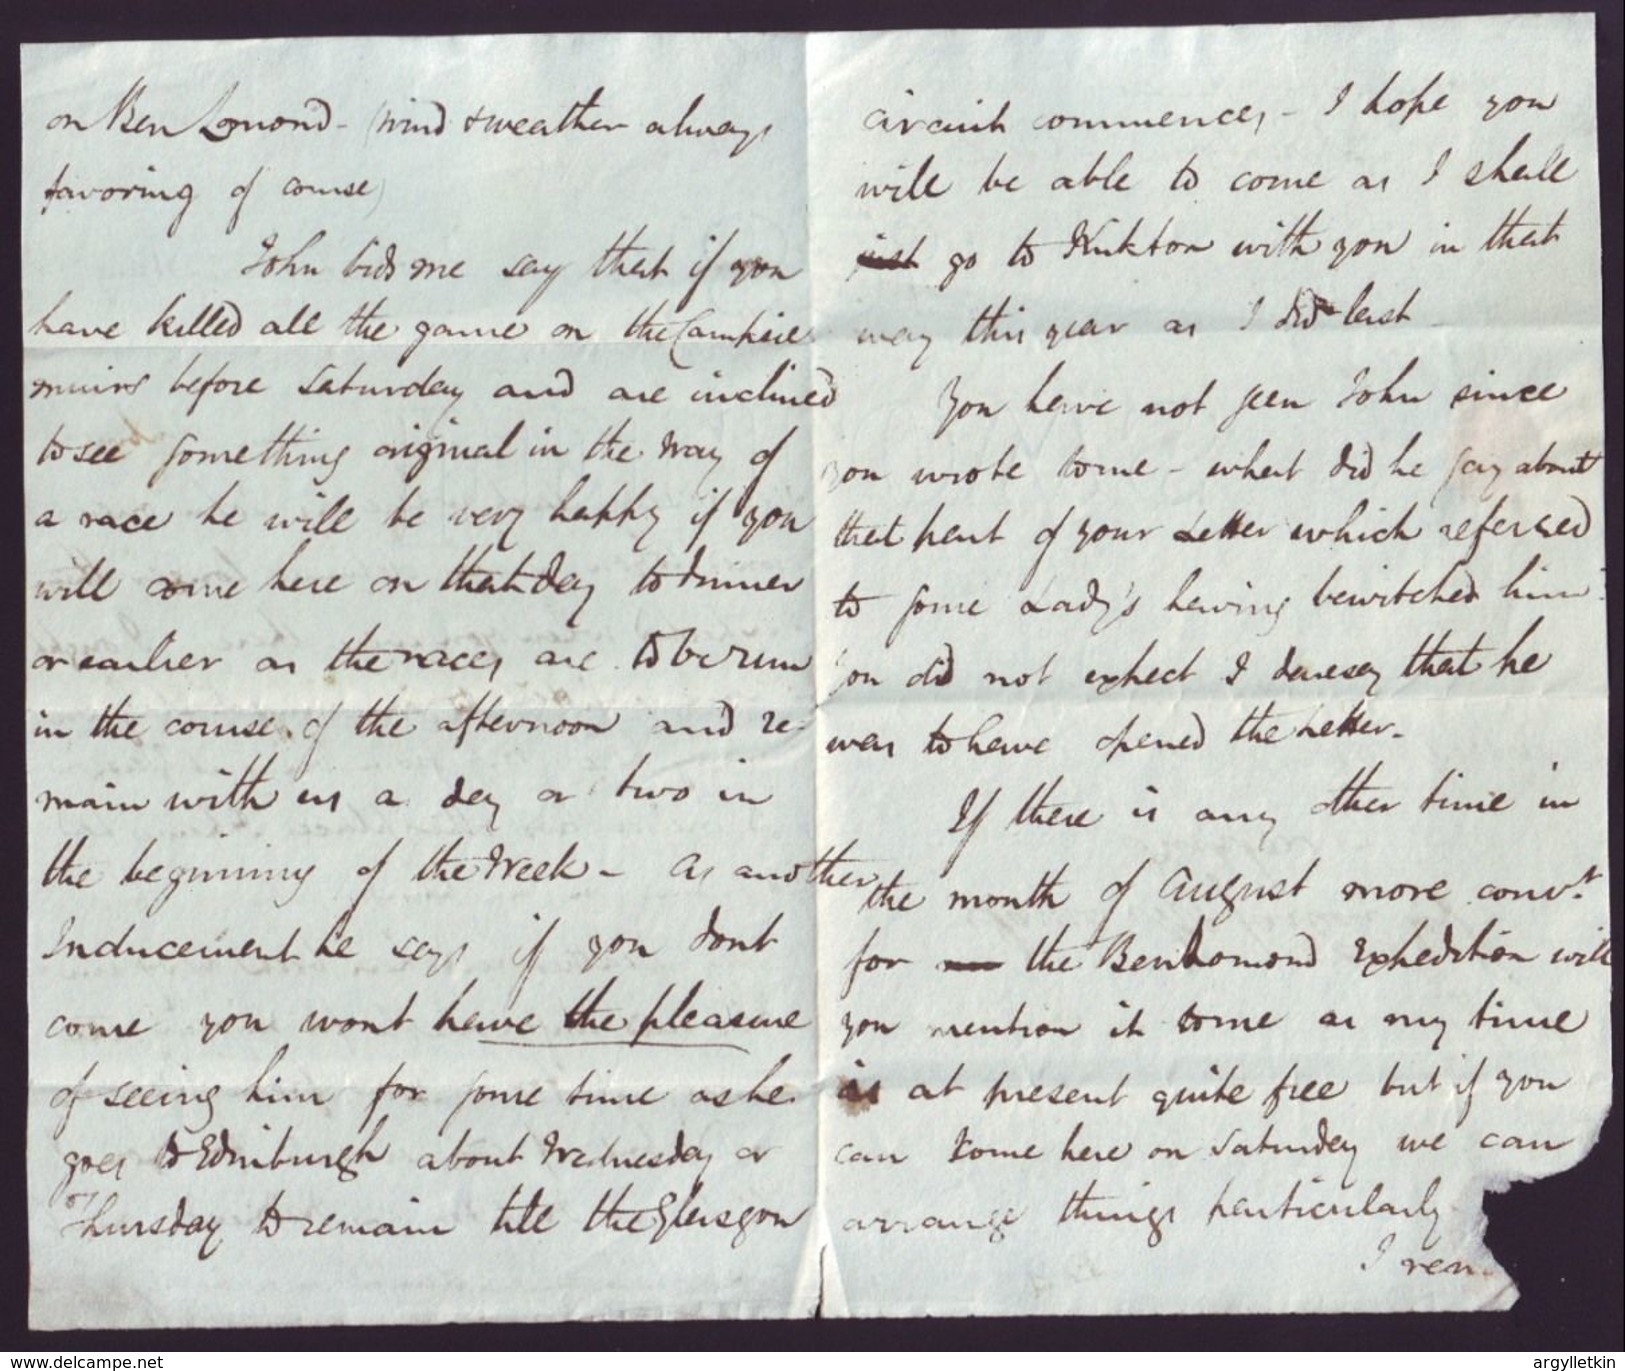 on Ben Lomond - (wind & weather always
favoring of course)
John bids me say that if you
have killed all the game on the Campsie
muirs before Saturday and are inclined
to see something original in the way of
a race he will be very happy if you
will come here on that day to dinner
or earlier as the races are to be run
in the course of the afternoon and re-
main with us a day or two in
the beginning of the Week - as another
Inducement he says if you dont
come you wont have the pleasure
of seeing him for some time as he
goes to Edinburgh about Wednesday or
Thursday to remain till the Glasgow
circuit commences - I hope you
will be able to come as I shall
just go to Kirkton with you in that
way this year as I did last
You have not seen John since
you wrote to me - what did he say about
that part of your Letter which referred
to some Lady's having bewitched him
You did not expect I daresay that he
was to have opened the Letter.
If there is any other time in
the month of August more convt.
for the Ben Lomond Expedition will
you mention it to me as my time
is at present quite free but if you
can come here on Saturday we can
arrange things particularly
I rem
www.delcampe.net
argylletkin